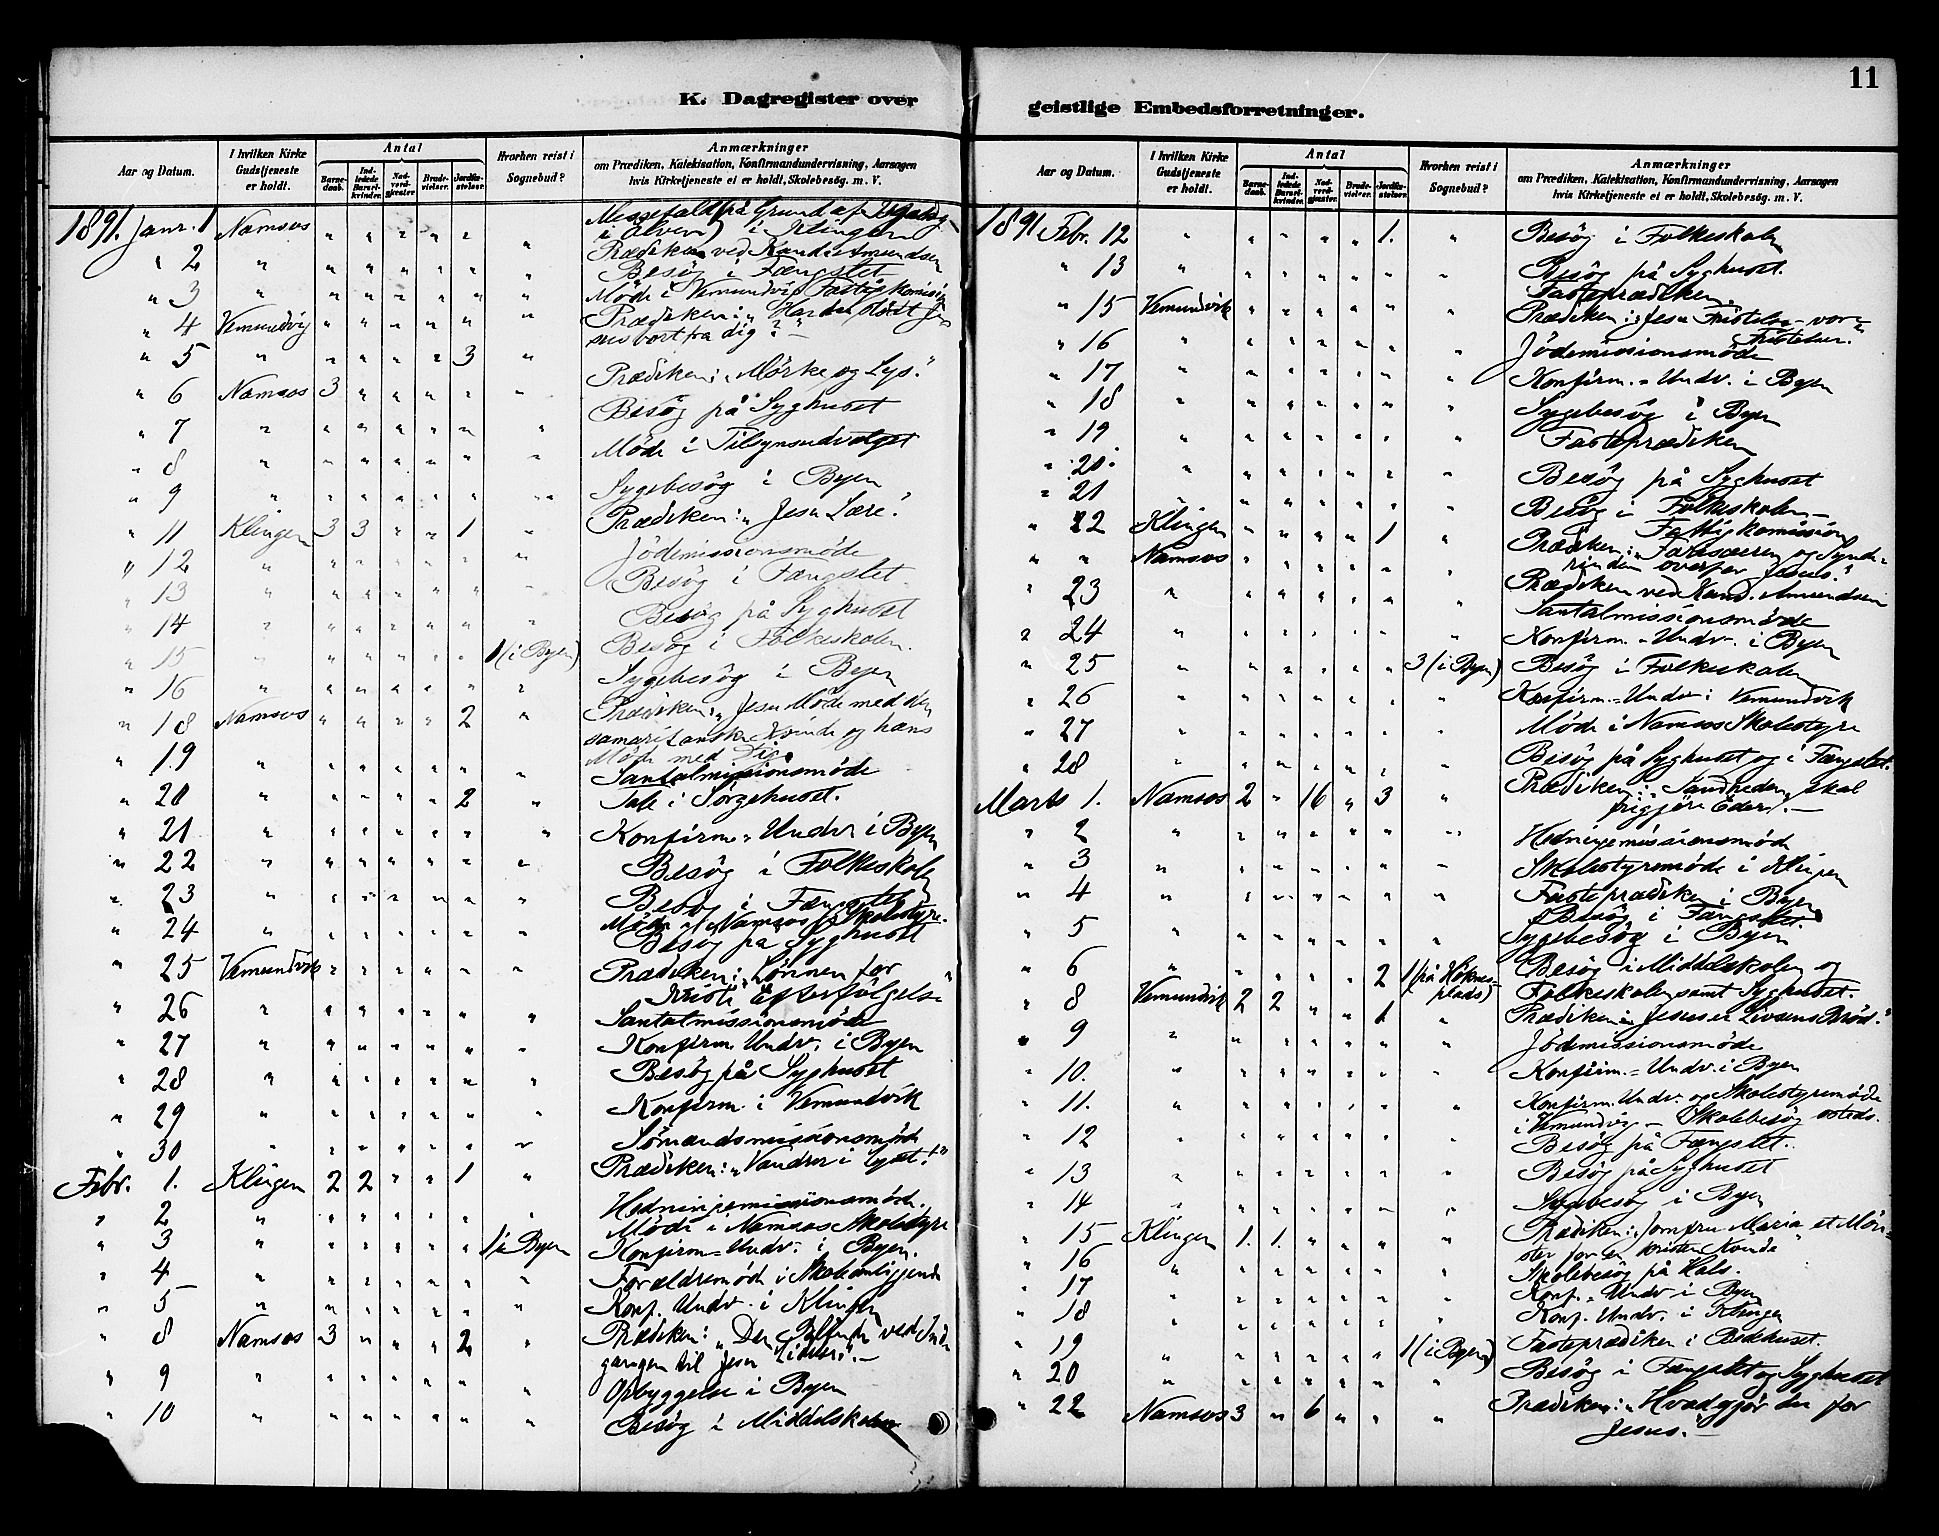 11
K. Dagregister over geistlige Embedsforretninger.
Aar og Datum.
I hvilken Kirke Gudstjeneste er holdt.
Antal
Barnedaab.
Indledede Barselkvinder.
Nadverdgjester.
Brudevielser.
Jordfæstelser.
Hvorhen reist i Sognebud?
Anmærkninger
om Prædiken, Katekisation, Konfirmandundervisning, Aarsagen
hvis Kirketjeneste ei er holdt, Skolebesøg. m. V.
1891. Janr. 1 Namsos " " " " " " Messefald på Grund af
i Elven) i Klingen
Prædiken ved Kand. Amundsen
" 2 " " " " " " " Besøg i Fængslet
" 3 " " " " " " " Møde i Vemundvig Fattigkomisjon
" 4 Vemundvig " " " " " " Prædiken: „Har du Mödt Jesus
bort fra dig?"
" 5 " " " " " 3 "
" 6 Namsos 3 " " " " " Prædiken: „Mørke og Lys."
" 7 " " " " " " " Besøg på Syghuset
" 8 " " " " " " " Møde i Tilsynsudvalget
" 9 " " " " " " " Sygebesøg i Byen
" 11 Klingen 3 3 " " 1 " Prædiken: „Jesu Lære".
" 12 " " " " " " " Jödemissionsmøde
" 13 " " " " " " " Besøg i Fængslet.
" 14 " " " " " " " Besøg på Syghuset
" 15 " " " " " " 1 (i Byen) Besøg i Folkeskolen.
" 16 " " " " " " " Sygebesøg i Byen
" 18 Namsos " " " " 2 " Prædiken: „Jesu Møde med den
samaritanske Kvinde og hans
Møde med Dig.
" 19 " " " " " " " Santalmissionsmøde
" 20 " " " " " 2 " Tale i Sørgehuset.
" 21 " " " " " " " Konfirm.- Underv i Byen
" 22 " " " " " " " Besøg i Folkeskolen
" 23 " " " " " " " Besøg i Fængslet
Møde i Namsos Skolestyre.
" 24 " " " " " " " Besøg på Syghuset
" 25 Vemundvik " " " " " " Prædiken: „Lønnen for
Kristi Efterfølgelse"
" 26 " " " " " " " Santalmissionsmøde
" 27 " " " " " " " Konfirm. Undv. i Byen
" 28 " " " " " " " Besøg på Syghuset
" 29 " " " " " " " Konfirm. i Vemundvik
" 30 " " " " " " " Sømandsmissionsmøde
Febr. 1. Klingen 2 2 " " 1 " Prædiken: „Vandrer i Lyset!"
" 2 " " " " " " " Hedningemissionsmøde.
Møde i Namsos Skolestyre
" 3 " " " " " " 1 i Byen Konfirm.- Undv. i Byen.
" 4 " " " " " " " Forældremøde i Skoleanliggende
" 5 " " " " " " " Konf. Undv. i Klingen
" 8 Namsos 3 " " " 2 " Prædiken: „Den Blinde ved Ind
gangen til Jesu Lidelse".-
" 9 " " " " " " " Opbyggelse i Byen
" 10 " " " " " " " Besøg i Middelskolen
Aar og Datum.
I hvilken Kirke Gudstjeneste er holdt.
Antal
Barnedaab.
Indledede Barselkvinder.
Nadverdgjester.
Brudevielser.
Jordfæstelser.
Hvorhen reist i Sognebud?
Anmærkninger
om Prædiken, Katekisation, Konfirmandundervisning, Aarsagen
hvis Kirketjeneste ei er holdt, Skolebesøg. m. V.
1891 Febr. 12 " " " " " 1. " Besøg i Folkeskolen
" 13 " " " " " " " Besøg på Syghuset.
Fasteprædiken
" 15 Vemundvik " " " " " " Prædiken: „Jesu Fristelse – vor
Fristelser."
" 16 " " " " " " " Jödemissionsmøde
" 17 " " " " " " " Konfirm.- Undv. i Byen
" 18 " " " " " " " Sygebesøg i Byen
" 19 " " " " " " " Fasteprædiken
" 20. " " " " " " " Besøg på Syghuset
" 21 " " " " " " " Besøg i Folkeskolen -
Fattigkomission
" 22 Klingen " " " " 1 " Prædiken: „Farisæeren og Synd-
rinden overfor Jesus."
" " Namsos " " " " " " Prædiken ved Kand. Amundsen
" 23 " " " " " " " Santalmissionsmøde
" 24 " " " " " " " Konfirm.- Undv. i Byen
" 25 " " " " " " 3 (i Byen) Besøg i Folkeskolen
" 26 " " " " " " " Konfirm.- Undv. i Vemundvik
" 27 " " " " " " " Møde i Namsos Skolestyre
" 28 " " " " " " " Besøg på Syghuset og i Fængslet.
Marts 1. Namsos 2 " 16 " 3 " Prædiken: „Sandheden skal
frigjøre Eder".-
" 2 " " " " " " " Hedningemissionsmøde
" 3 " " " " " " " Skolestyremøde i Klingen
" 4 " " " " " " " Fasteprædiken i Byen
Besøg i Fængslet.
" 5 " " " " " " " Sygebesøg i Byen
" 6 " " " " " 2 1 (på Høknesplads) Besøg i Middelskolen og
Folkeskolen samt Syghuset.
" 8 Vemundvik 2 2 " " 1 " Prædiken: „Jesus er Livsens Brød."
" 9 " " " " " " " Jödemissionsmøde
" 10. " " " " " " " Konfirm.- Undv. i Byen
" 11. " " " " " " " Konfirm. Undv. og Skolestyremøde
i Vemundvig – Skolebesøg sosteds.
" 12 " " " " " " " Besøg på Fængslet.
" 13 " " " " " " " Besøg på Syghuset
" 14 " " " " " " " Sygebesøg i Byen
" 15 Klingen 1. 1. " " " " Prædiken: „Jomfru Maria et Møn-
ster for en kristen Kvinde"
" 16 " " " " " " " Skolebesøg på Hals.
" 17 " " " " " " " Konf.- Undv. i Byen
" 18 " " " " " " " Konf. Undv. i Klingen
" 19 " " " " " " 1 (i Byen) Fasteprædiken i Bedehuset.
" 20 " " " " " " " Besøg i Fængslet og Syghuset
" 22 Namsos 3 " 6 " " " Prædiken: „Hvad gjør du for
Jesus.-"